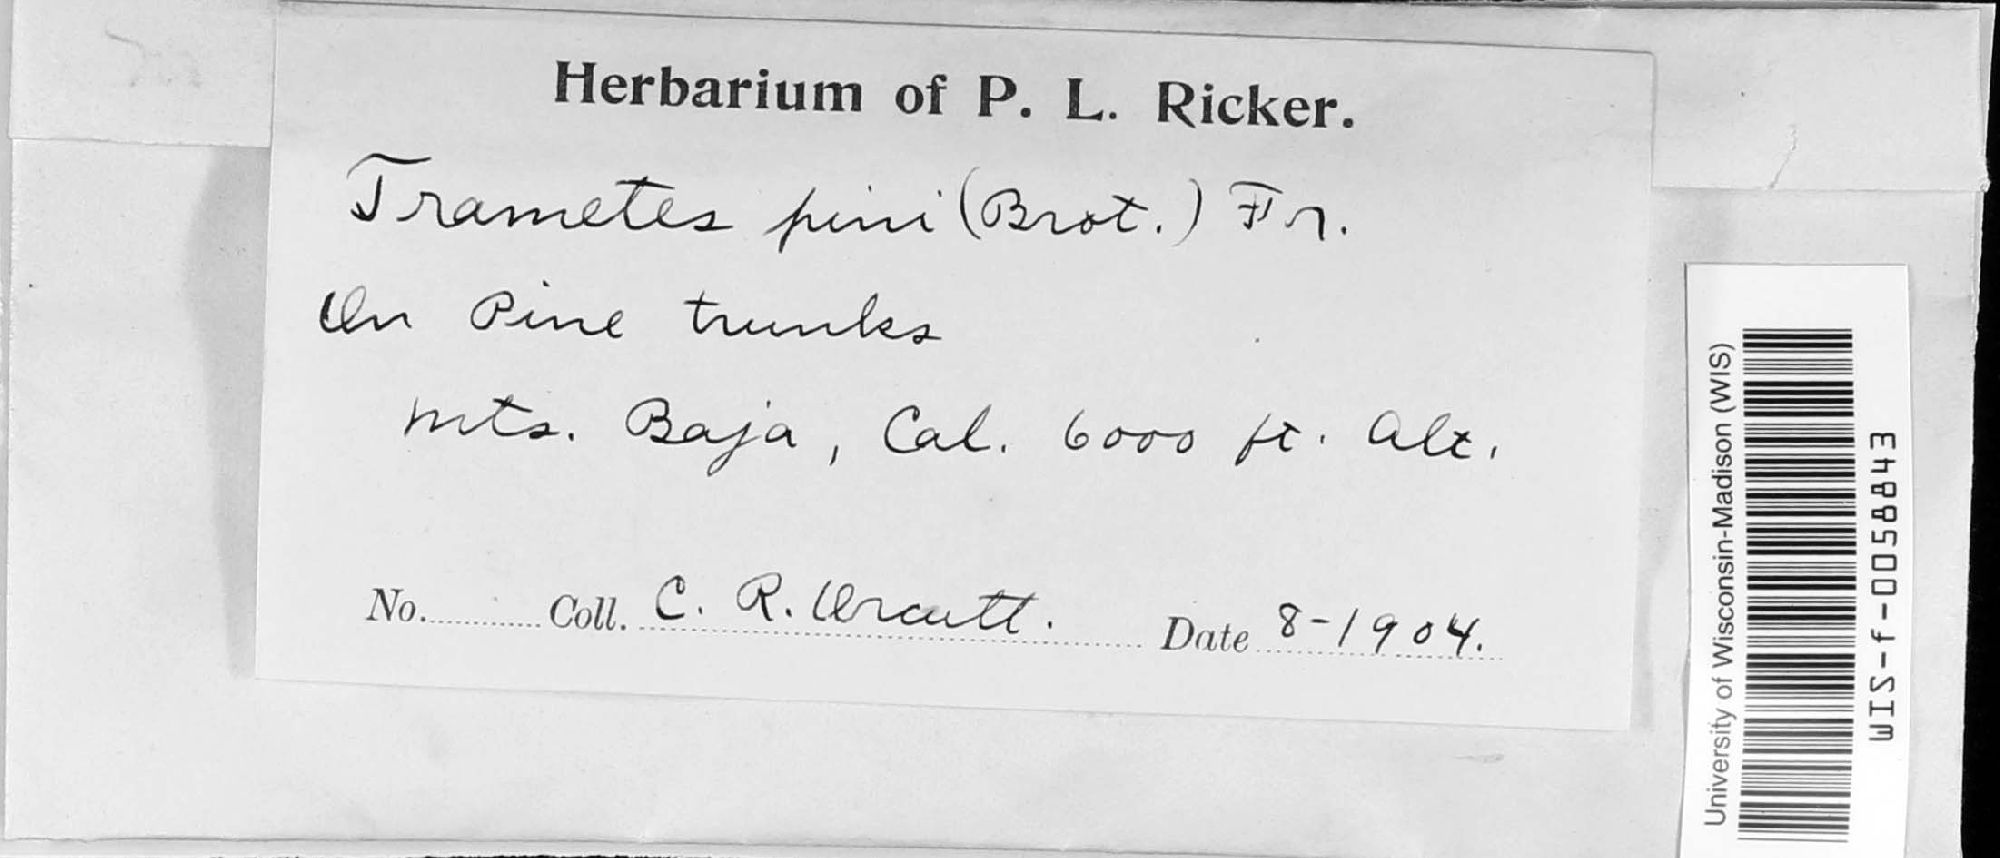 Herbarium of P. L. Ricker.
Trametes pini (Brot.) Fr.
On Pine trunks
Mts. Baja, Cal. 6000 ft. Alt.
No. Coll. C. R. Orcutt. Date 8-1904.
University of Wisconsin-Madison (WIS)
WIS-f-0058843